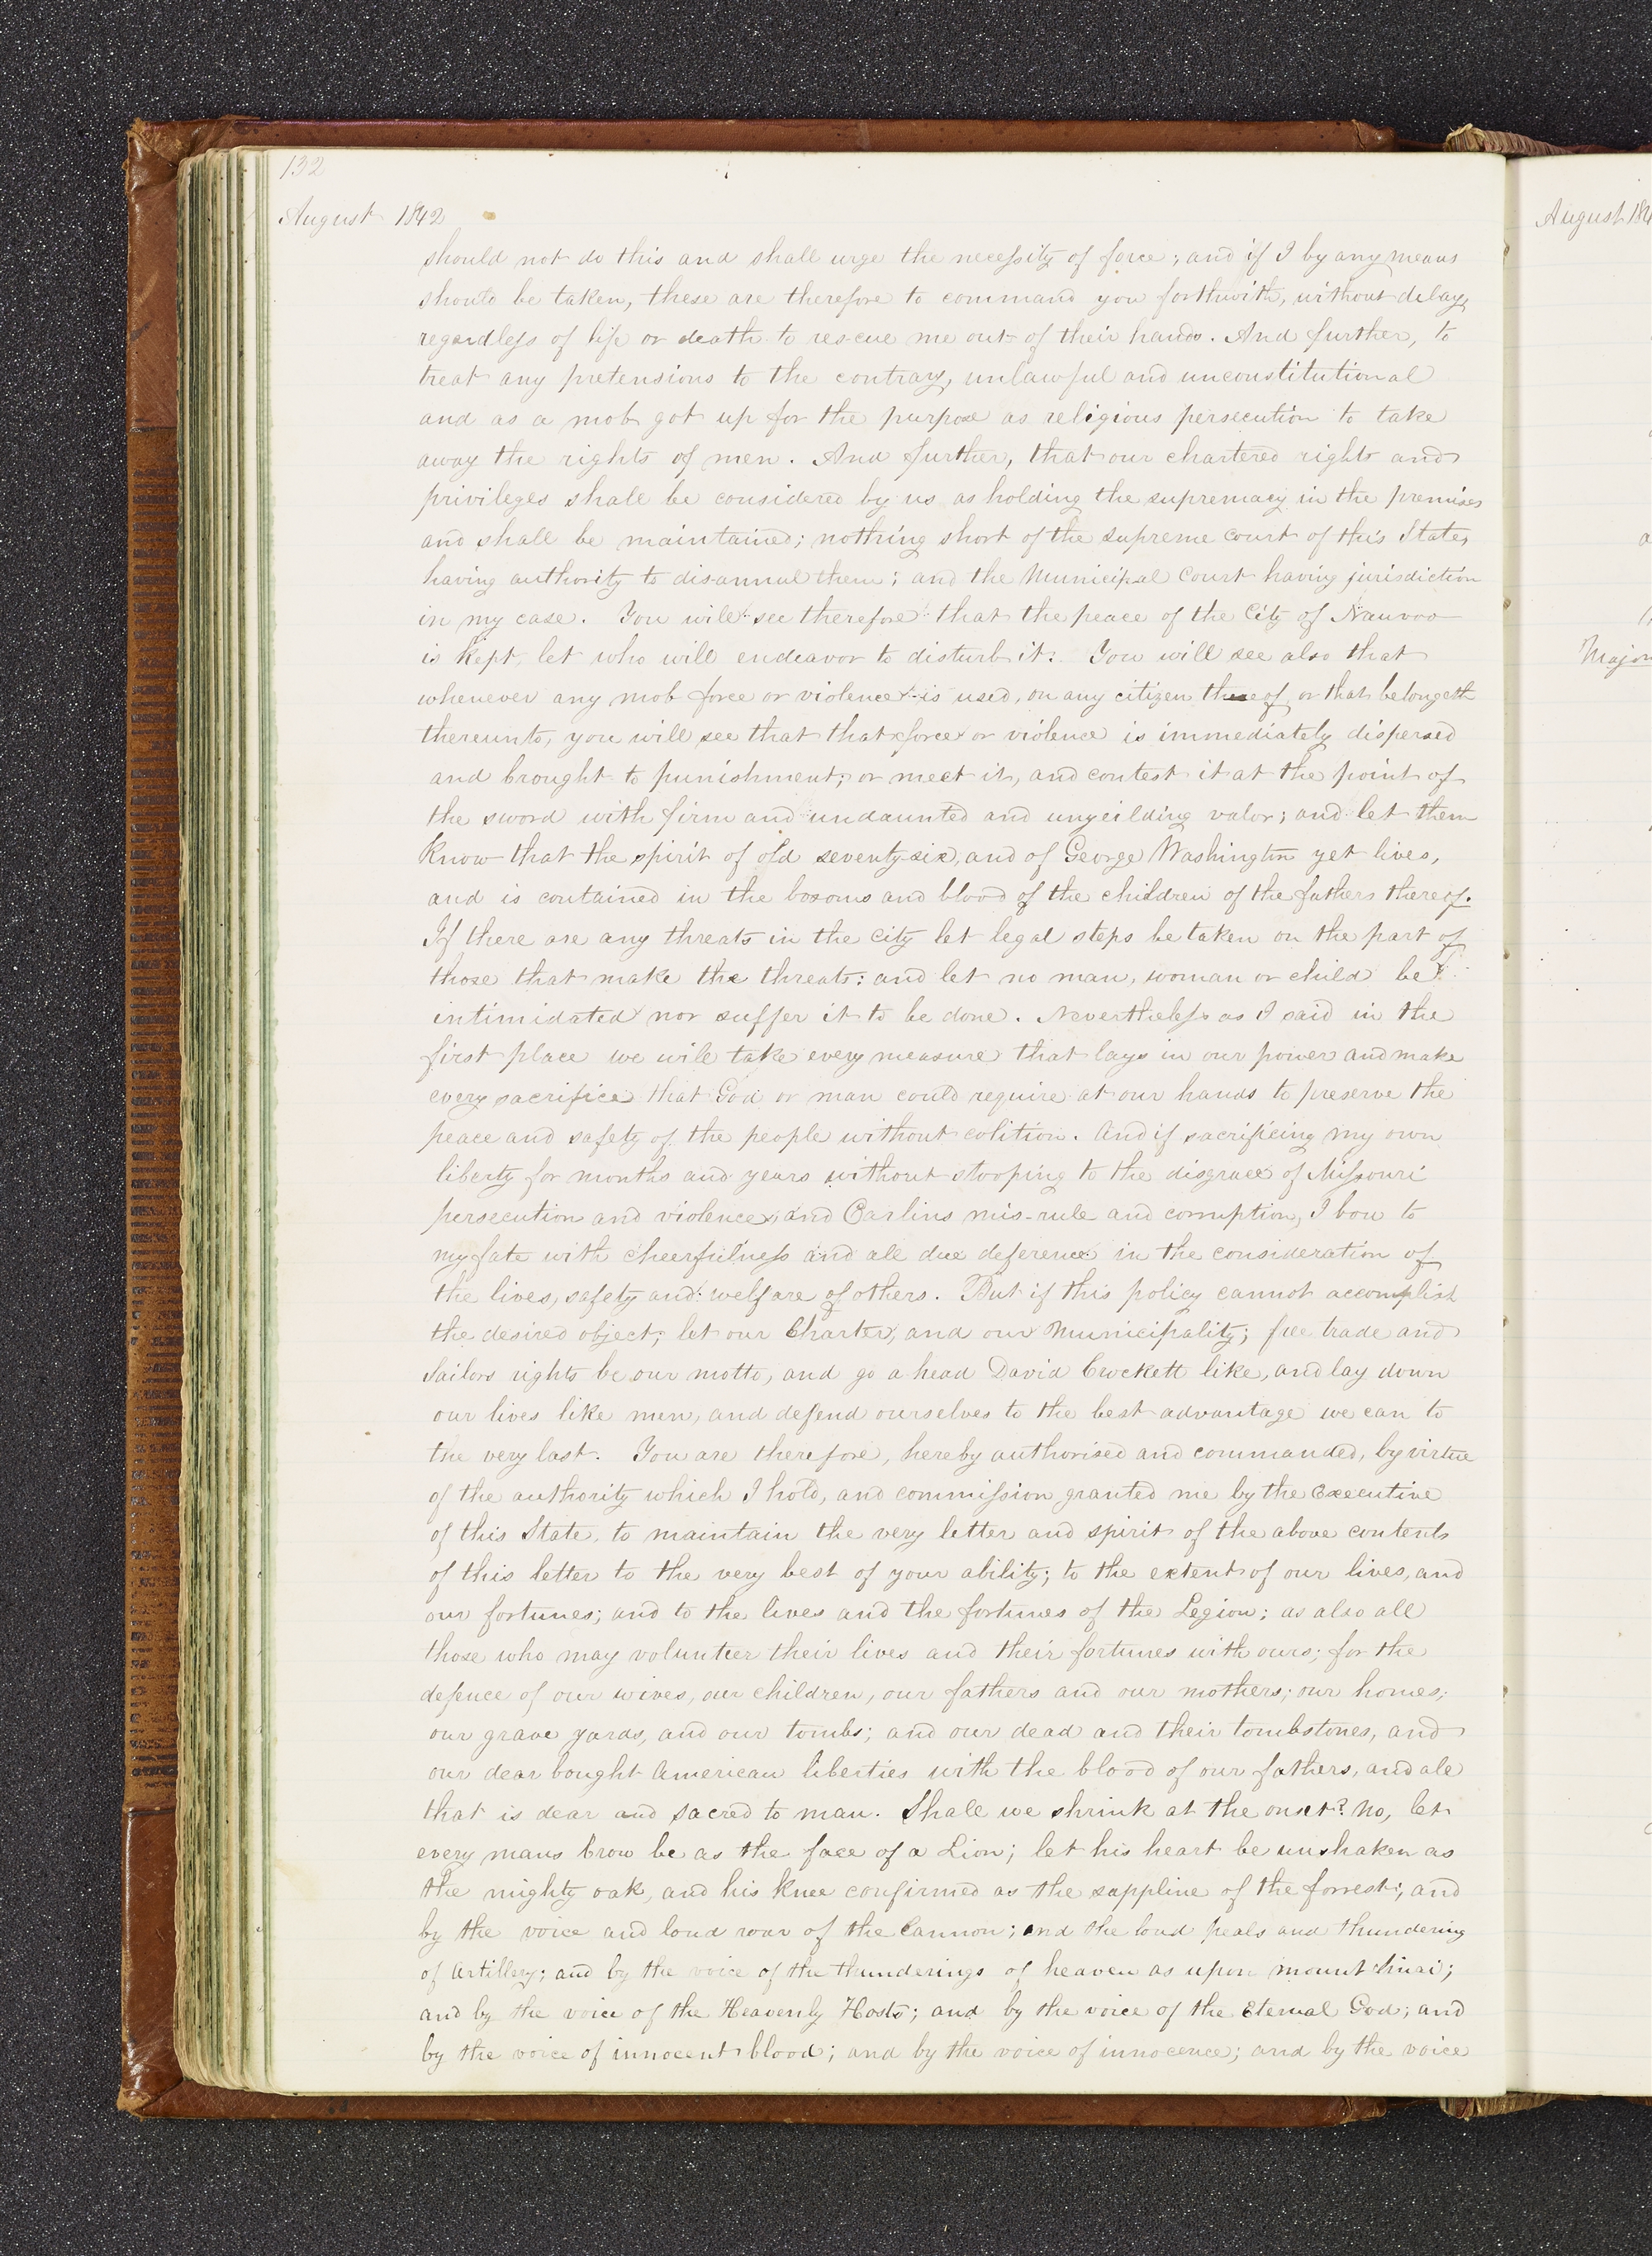 132
August 1842
should not do this and shall urge the necessity of force; and if I by any means
should be taken, these are therefore to command you forthwith, without delay,
regardless of life or death to rescue me out of their hands. And further, to
treat any pretensions to the contrary, unlawful and unconstitutional
and as a mob got up for the purpose as religious persecution to take
away the rights of men. And further, that our chartered rights and
privileges shall be considered by us as holding the supremacy in the premises
and shall be maintained; nothing short of the supreme court of this State,
having authority to disannul them; and the Municipal Court having jurisdiction
in my case. You will see therefore that the peace of the City of Nauvoo
is kept, let who will endeavor to disturb it. You will see also that
whenever any mob force or violence is used, on any citizen thereof, or that belongeth
thereunto, you will see that that force or violence is immediately dispersed
and brought to punishment; or meet it, and contest it at the point of
the sword with firm and undaunted and unyeilding valor; and let them
know that the spirit of old seventy-six, and of George Washington yet lives,
and is contained in the bosoms and blood of the children of the fathers thereof.
If there are any threats in the city let legal steps be taken on the part of
those that make the threats: and let no man, woman or child be
intimidated nor suffer it to be done. Nevertheless as I said in the
first place we will take every measure that lays in our power and make
every sacrifice that God or man could require at our hands to preserve the
peace and safety of the people without colition. And if sacrificing my own
liberty for months and years without stooping to the disgrace of Missouri
persecution and violence, and Carlins mis-rule and corruption, I bow to
my fate with cheerfulness and all due deference in the consideration of
the lives, safety and welfare of others. But if this policy cannot accomplish
the desired object; let our Charter, and our Municipality; free trade and
Sailors rights be our motto, and go a head David Crockett like, and lay down
our lives like men, and defend ourselves to the best advantage we can to
the very last. You are therefore, hereby authorised and commanded, by virtue
of the authority which I hold, and commission granted me by the Executive
of this State, to maintain the very letter and spirit of the above contents
of this letter to the very best of your ability; to the extent of our lives, and
our fortunes; and to the lives and the fortunes of the Legion; as also all
those who may volunteer their lives and their fortunes with ours; for the
defence of our wives, our children, our fathers and our mothers; our homes;
our grave yards, and our tombs; and our dead and their tombstones, and
our dear bought American liberties with the blood of our fathers, and all
that is dear and sacred to man. Shall we shrink at the onset? No, let
every mans brow be as the face of a Lion; let his heart be unshaken as
the mighty oak, and his knee confirmed as the sappline of the forrest; and
by the voice and loud roar of the Cannon; and the loud peals and thundering
of Artillery; and by the voice of the thunderings of heaven as upon mount Sinai;
and by the voice of the Heavenly Hosts; and by the voice of the Eternal God; and
by the voice of innocent blood; and by the voice of innocence; and by the voice
August 184
Major